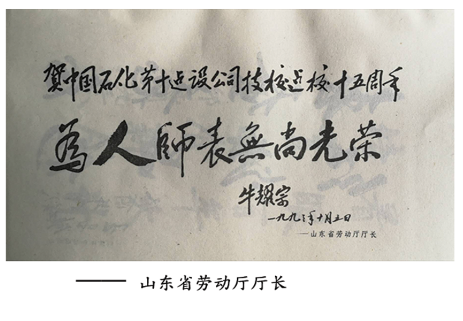 贺中国石化第十建设公司技校建校十五周年
為人師表無尚光荣
牛耀宗
一九九三年十月五日
——山东省劳动厅厅长
—— 山东省劳动厅厅长